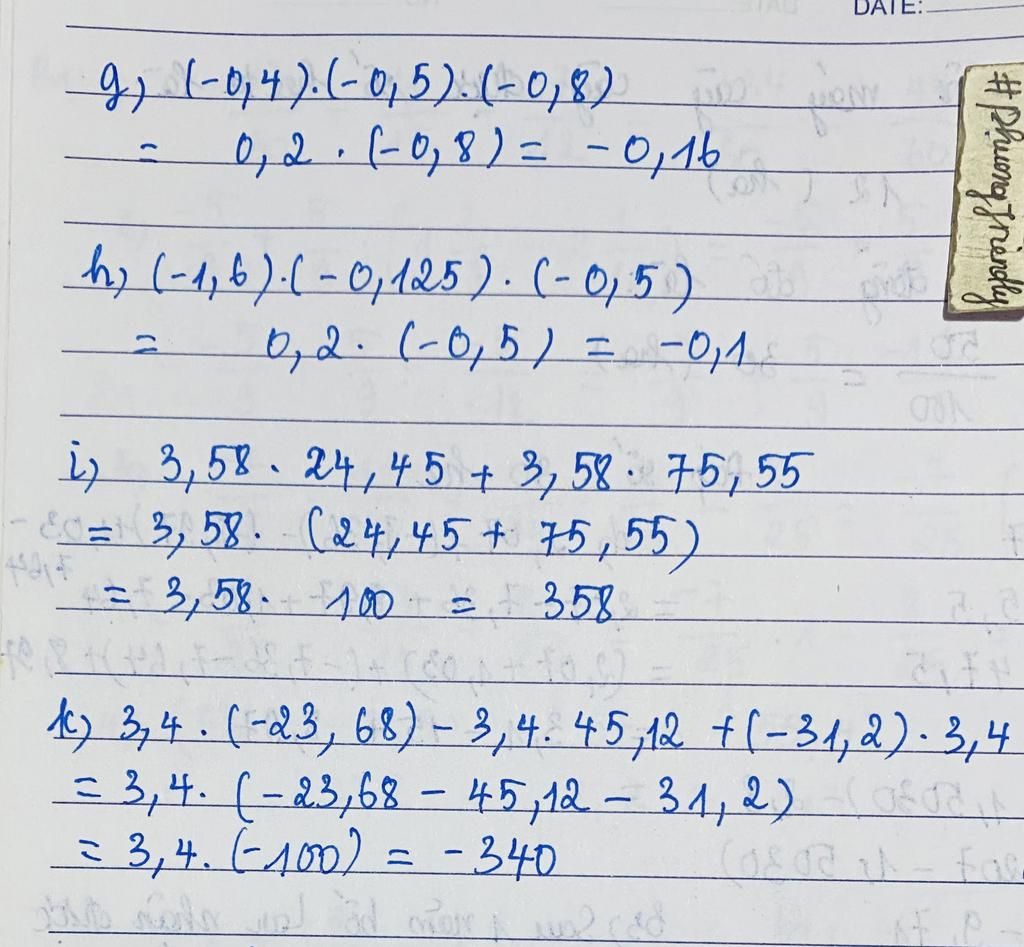 DATE:
#PhuongFriendly
g) (-0,4).(-0,5).(-0,8)
= 0,2 . (-0,8) = -0,16
h) (-1,6).(-0,125).(-0,5)
= 0,2. (-0,5) = -0,1
i) 3,58. 24,45 + 3,58. 75,55
= 3,58. (24,45 + 75,55)
= 3,58. 100 = 358
k) 3,4 . (-23,68) - 3,4. 45,12 + (-31,2) . 3,4
= 3,4. (-23,68 - 45,12 - 31,2)
= 3,4. (-100) = -340